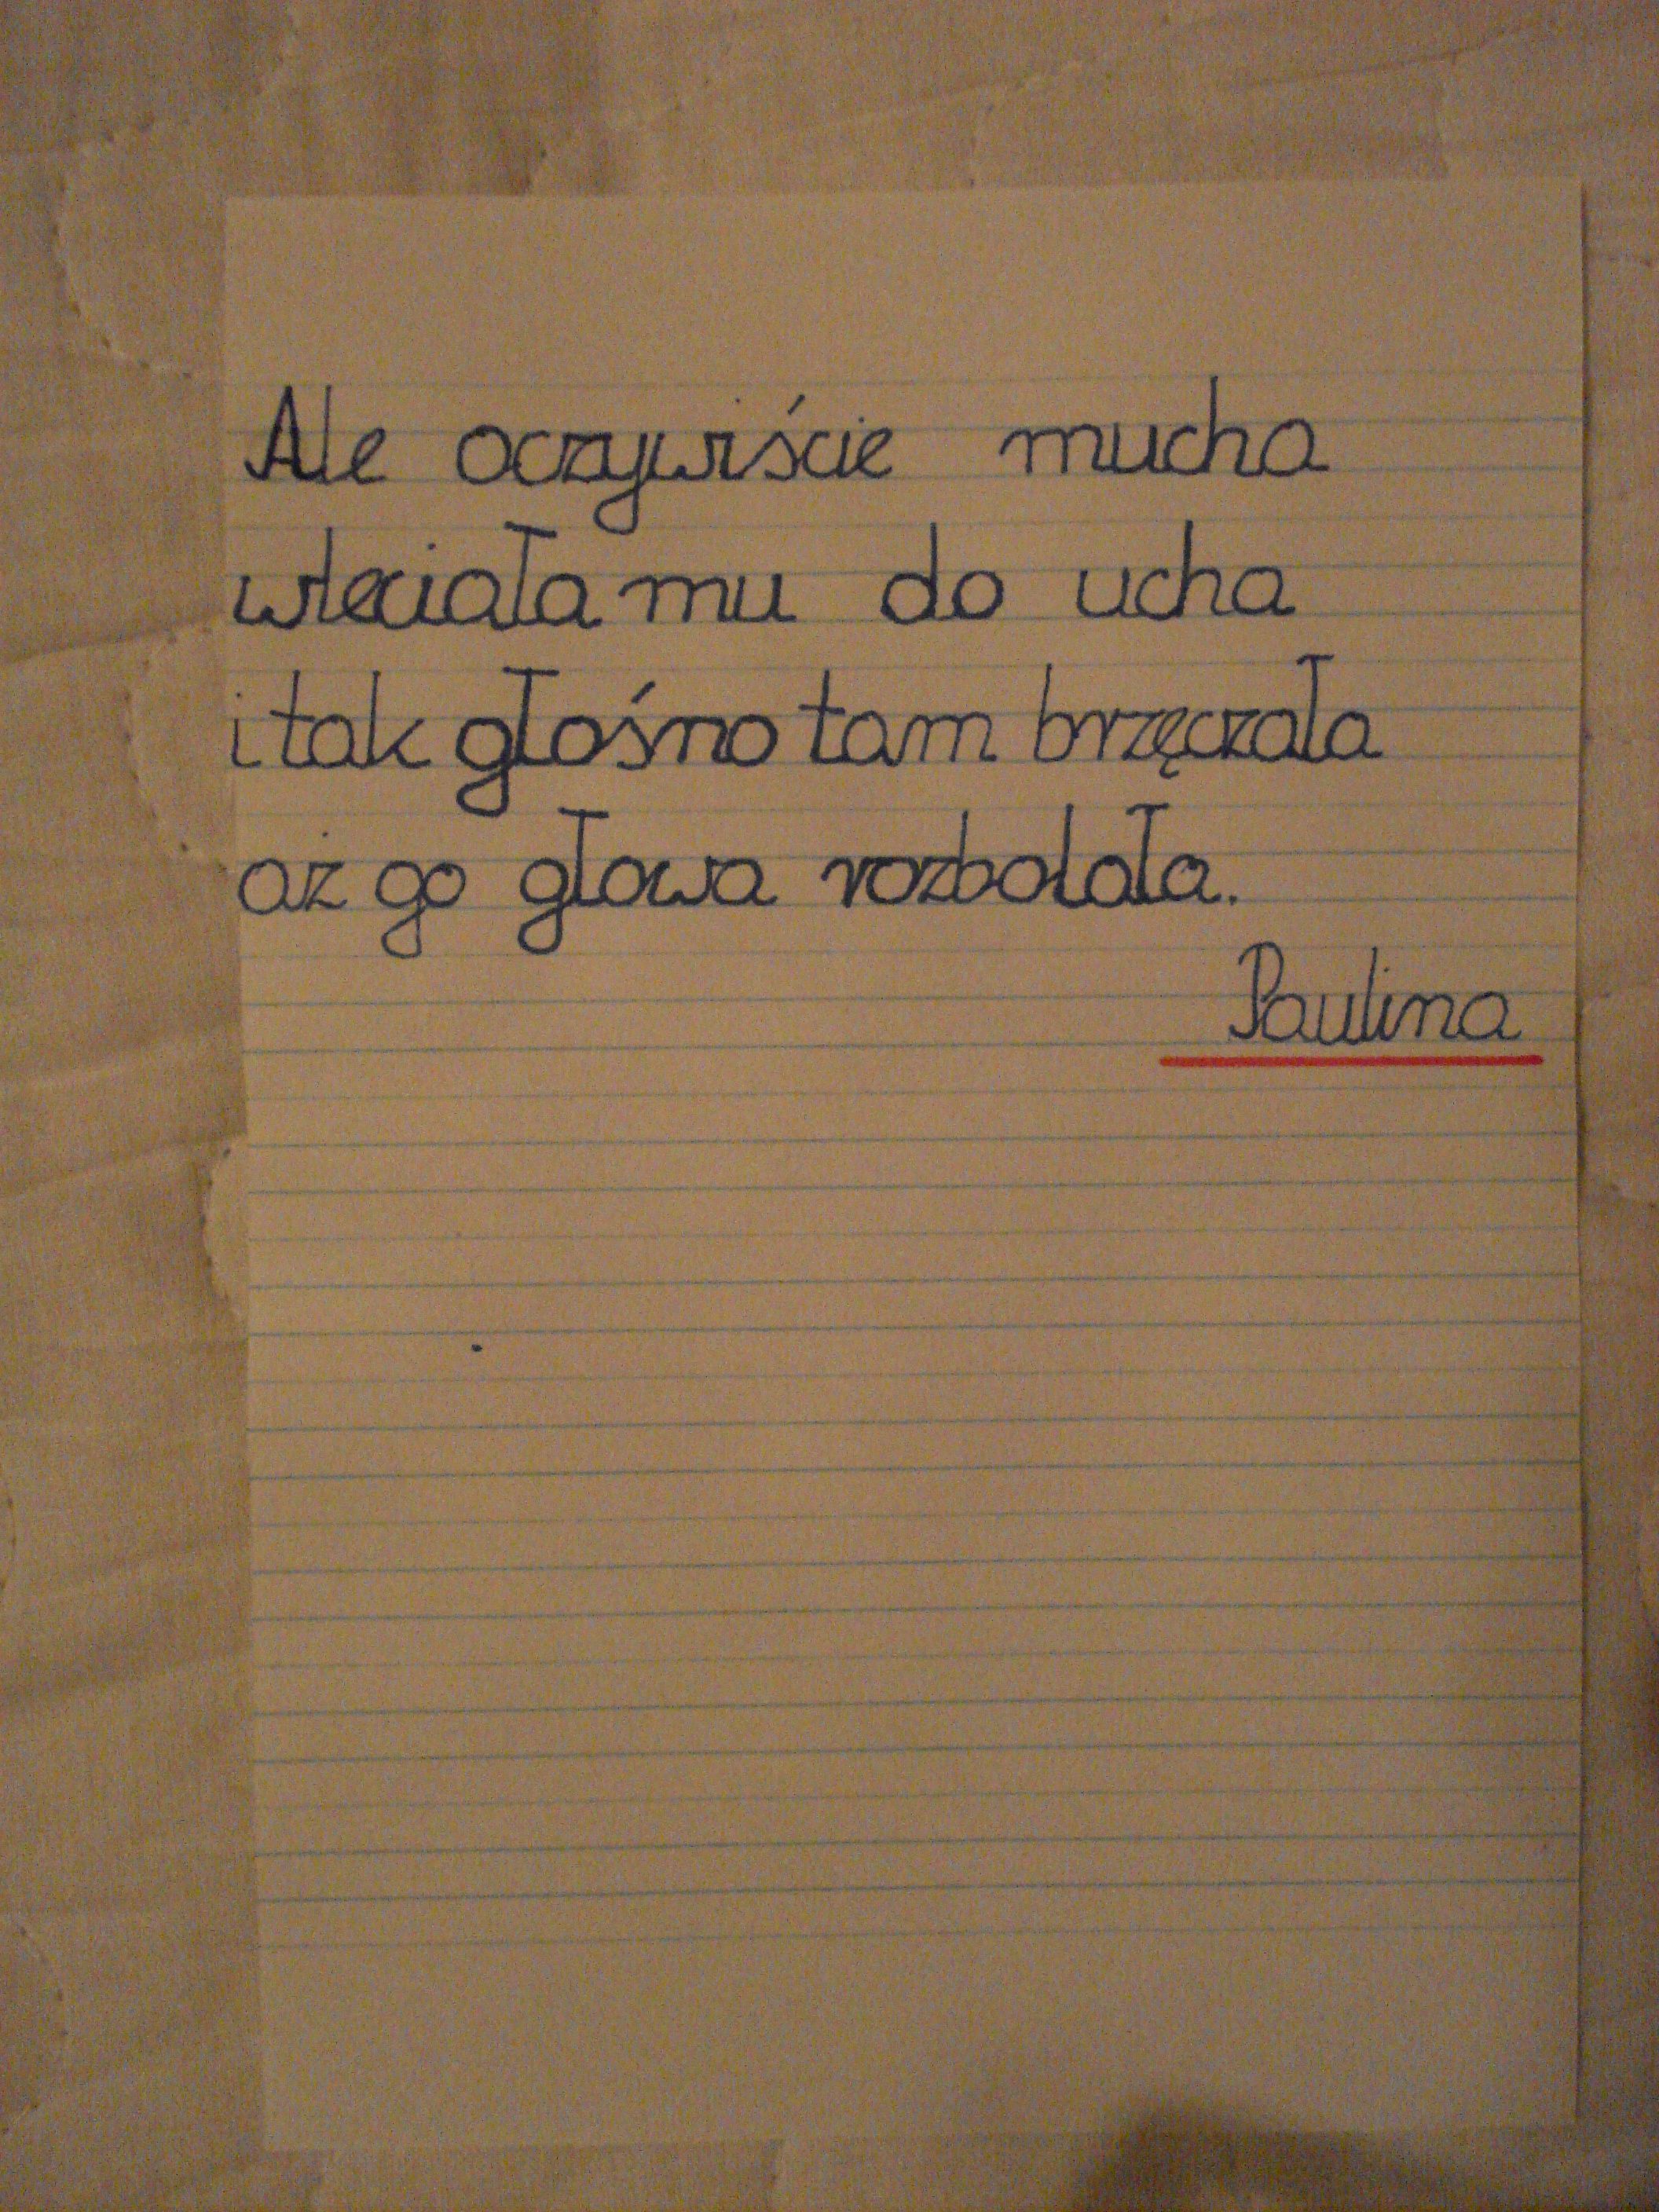 Ale oczywiście mucha
wleciała mu do ucha
i tak głośno tam brzęczała
aż go głowa rozbolała.
Paulina